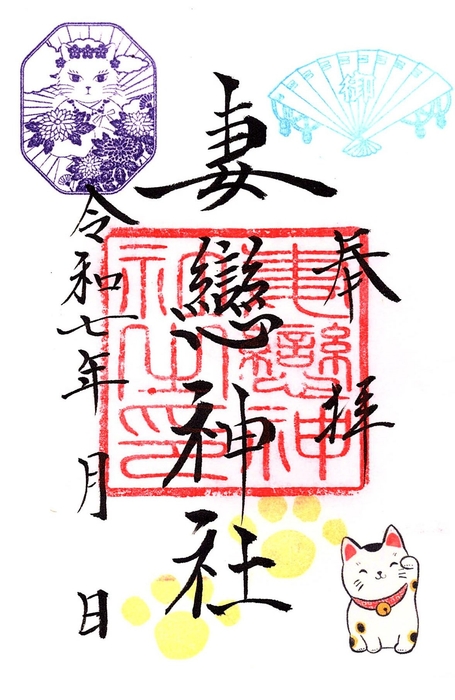 奉拝
妻戀神社
令和七年 月 日
妻戀神社印